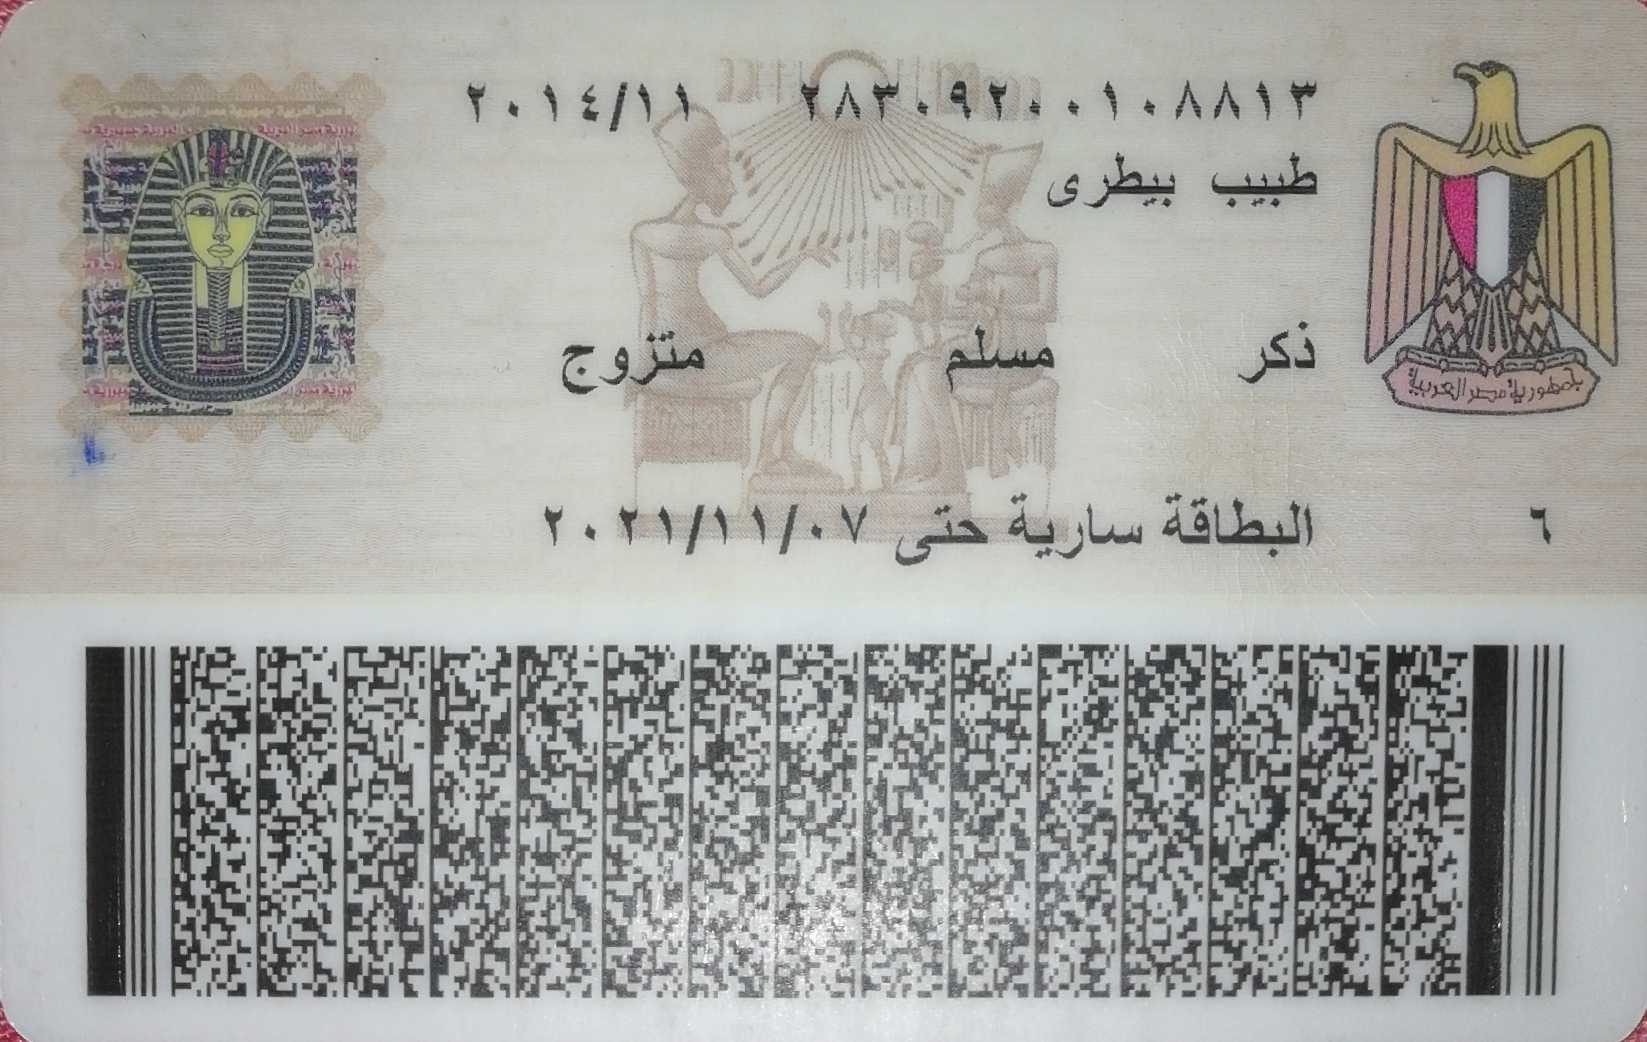 ٢٨٣٠٩٢٠٠١٠٨٨١٣ ٢٠١٤/١١
طبيب بيطرى
ذكر مسلم متزوج
جمهورية مصر العربية
٦ البطاقة سارية حتى ٢٠٢١/١١/٠٧